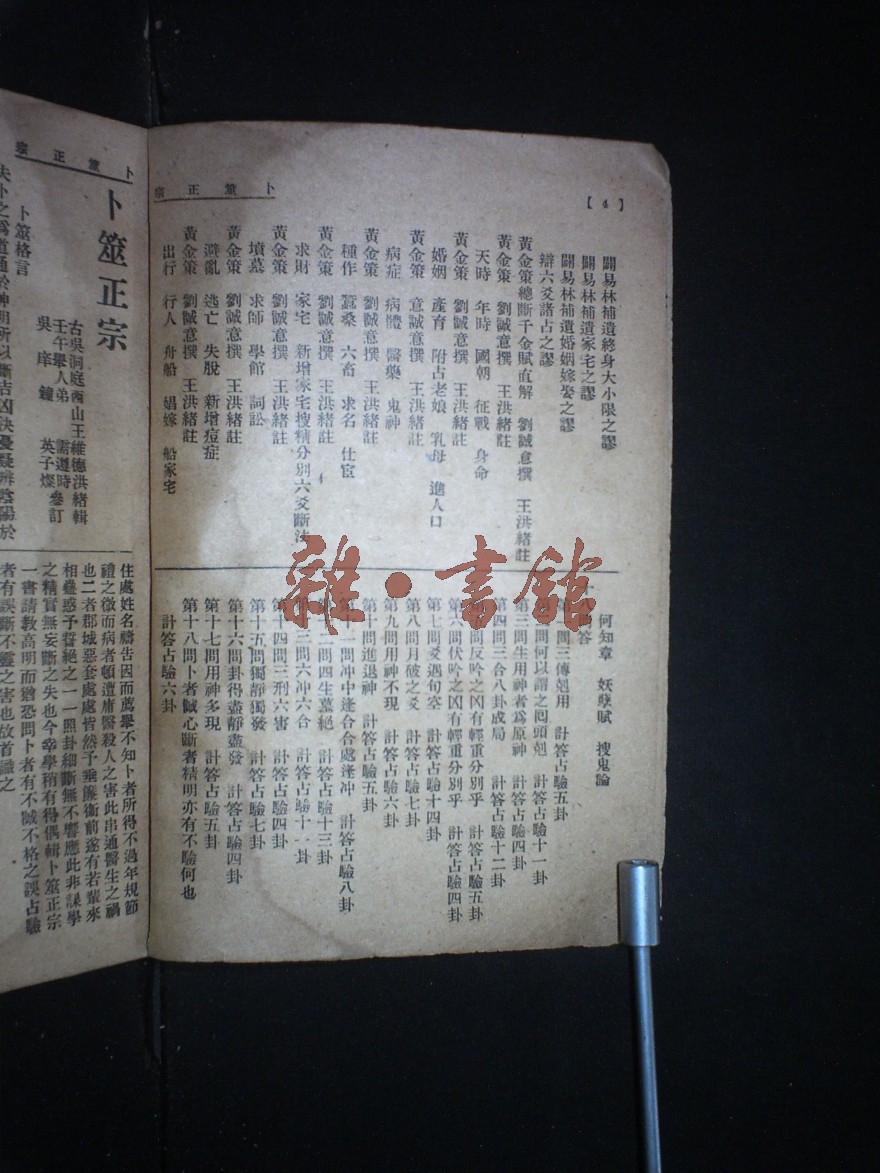 【4】
卜筮正宗
闢易林補遺終身大小限之謬
闢易林補遺家宅之謬
闢易林補遺婚姻嫁娶之謬
辯六爻諸占之謬
黃金策總斷千金賦直解 劉誠意撰 王洪緒註
黃金策 劉誠意撰 王洪緒註
天時 年時 國朝 征戰 身命
黃金策 劉誠意撰 王洪緒註
婚姻 產育 附占老娘 乳母 進人口
黃金策 意誠意撰 王洪緒註
病症 病體 醫藥 鬼神
黃金策 劉誠意撰 王洪緒註
種作 蠶桑 六畜 求名 仕宦
黃金策 劉誠意撰 王洪緒註
求財 家宅 新增家宅搜精分別六爻斷法
黃金策 劉誠意撰 王洪緒註
墳墓 求師 學館 詞訟
黃金策 劉誠意撰 王洪緒註
避亂 逃亡 失脫 新增痘症
黃金策 劉誠意撰 王洪緒註
出行 行人 舟船 娼嫁 船家宅
何知章 妖孽賦 搜鬼論
答
問三傳剋用 計答占驗五卦
問何以謂之回頭剋 計答占驗十一卦
第三問生用神者為原神 計答占驗四卦
第四問三合八卦成局 計答占驗十二卦
問反吟之凶有輕重分別乎 計答占驗五卦
第六問伏吟之凶有輕重分別乎 計答占驗四卦
第七問爻遇旬空 計答占驗十四卦
第八問月破之爻 計答占驗七卦
第九問用神不現 計答占驗六卦
第十問進退神 計答占驗五卦
第十一問冲中逢合合處逢冲 計答占驗八卦
二問四生墓絕 計答占驗十三卦
三問六冲六合 計答占驗十一卦
第十四問三刑六害 計答占驗四卦
第十五問獨靜獨發 計答占驗七卦
第十六問卦得盡靜盡發 計答占驗四卦
第十七問用神多現 計答占驗五卦
第十八問卜者誠心斷者精明亦有不驗何也
計答占驗六卦
卜筮正宗
卜筮正宗
古吳洞庭西山王維德洪緒輯
壬午舉人弟 需遵時參訂
吳庠 鐘 英子燦
卜筮格言
夫卜之為道通於神明所以斷吉凶決憂疑辨陰陽於
住處姓名禱告因而薦舉不知卜者所得不過年規節
禮之微而病者頓遭庸醫殺人之害此串通醫生之禍
也二者郡城惡套處處皆然予垂簾衛前遂有若輩來
相蠱惑予誓絕之一一照卦細斷無不響應此非謀學
之精實無妄斷之失也今幸學稍有得偶輯卜筮正宗
一書請教高明而猶恐問卜者有不誠不格之誤占驗
者有誤斷不靈之害也故首識之